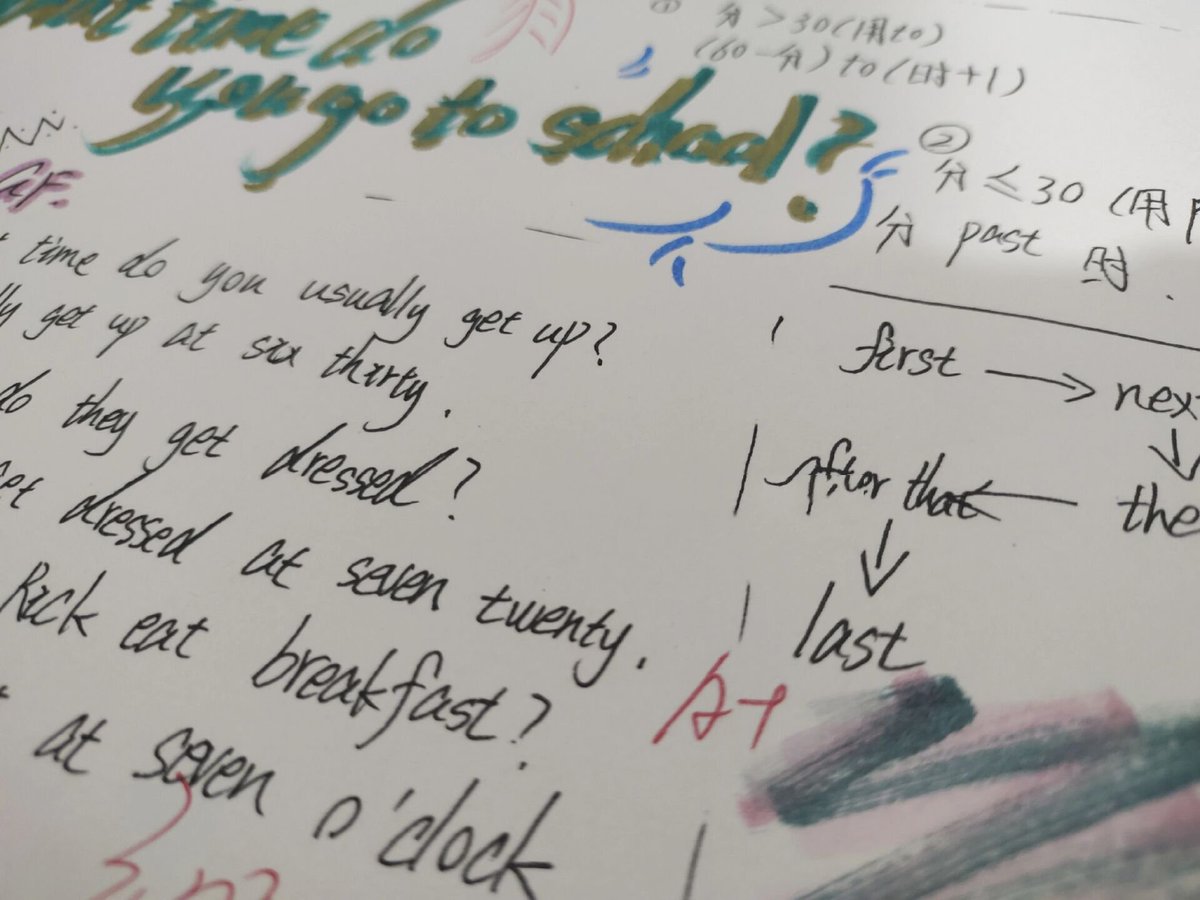 time do
you go to school?
GF.
time do you usually get up?
get up at six thirty.
do they get dressed?
get dressed at seven twenty.
Rick eat breakfast?
at seven o'clock
① 分>30(用to)
(60-分)to(时+1)
② 分≤30(用
分 past 时.
first → next
↓
after that ← the
↓
last
A+